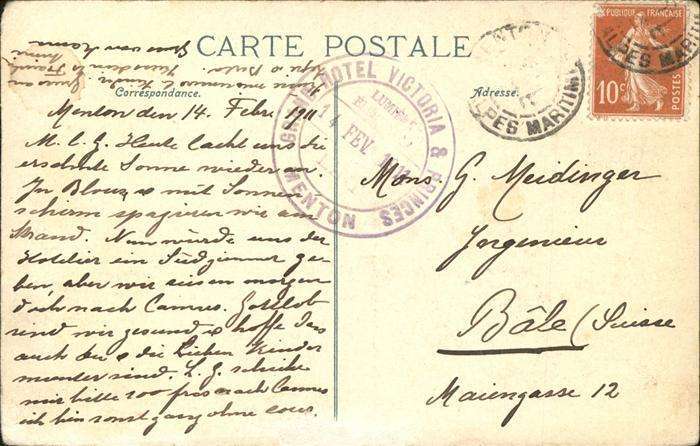 CARTE POSTALE
Correspondance.
Adresse.
Menton den 14. Febr. 1911
M. l. G. Heute lacht uns die
ersehnte Sonne wieder an.
In Blouse & mit Sonnen
schirm spazieren wir am
Strand. Nun würde uns der
Hotelier ein Südzimmer ge-
ben, aber wir reisen morgen
doch nach Cannes. Gottlob
sind wir gesund & hoffe dass
auch du & die lieben Kinder
munter sind. L. G. schicke
mir bitte 200 frcs nach Cannes
ich bin sonst ganz ohne
GRAND HOTEL VICTORIA & PRINCES
14 FEV.
MENTON
MENTON
ALPES MARITIMES
ALPES MARITIMES
REPUBLIQUE FRANÇAISE
10c
POSTES
Mons G. Meidinger
Ingenieur
Bâle (Suisse
Maiengasse 12